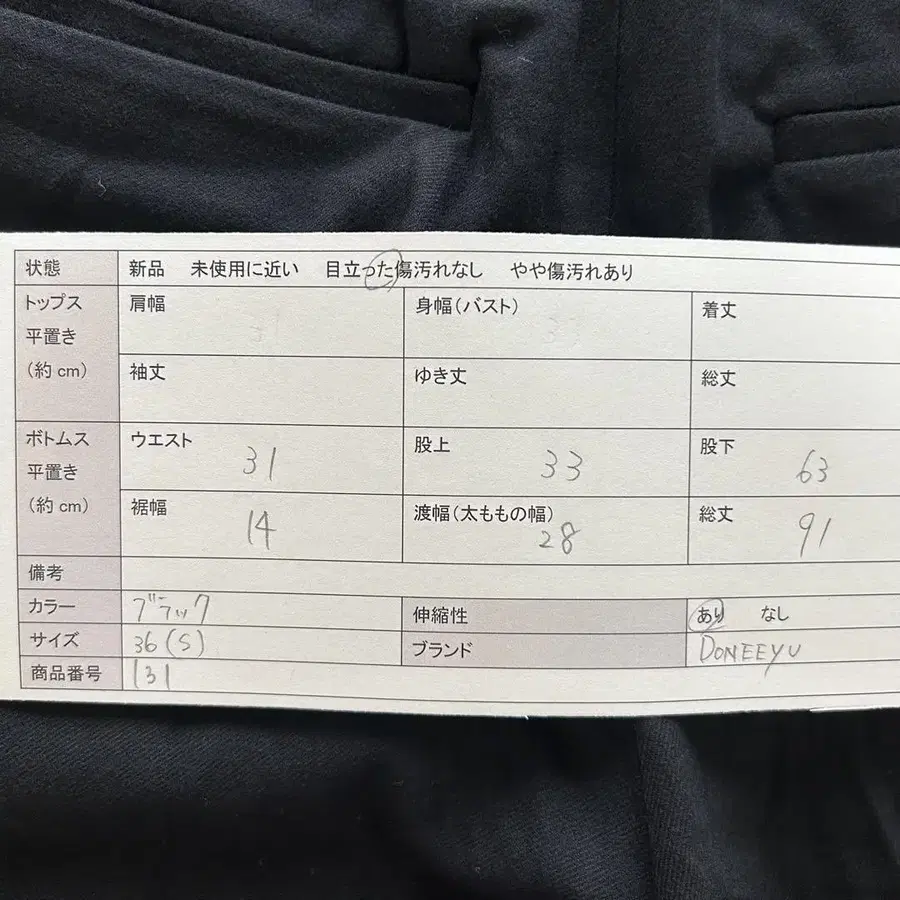 状態 新品 未使用に近い 目立った傷汚れなし やや傷汚れあり
トップス 平置き (約cm) 肩幅 身幅(バスト) 着丈
袖丈 ゆき丈 総丈
ボトムス 平置き (約cm) ウエスト 31 股上 33 股下 63
裾幅 14 渡幅(太ももの幅) 28 総丈 91
備考
カラー ブラック 伸縮性 あり なし
サイズ 36(S) ブランド DONEEYU
商品番号 131